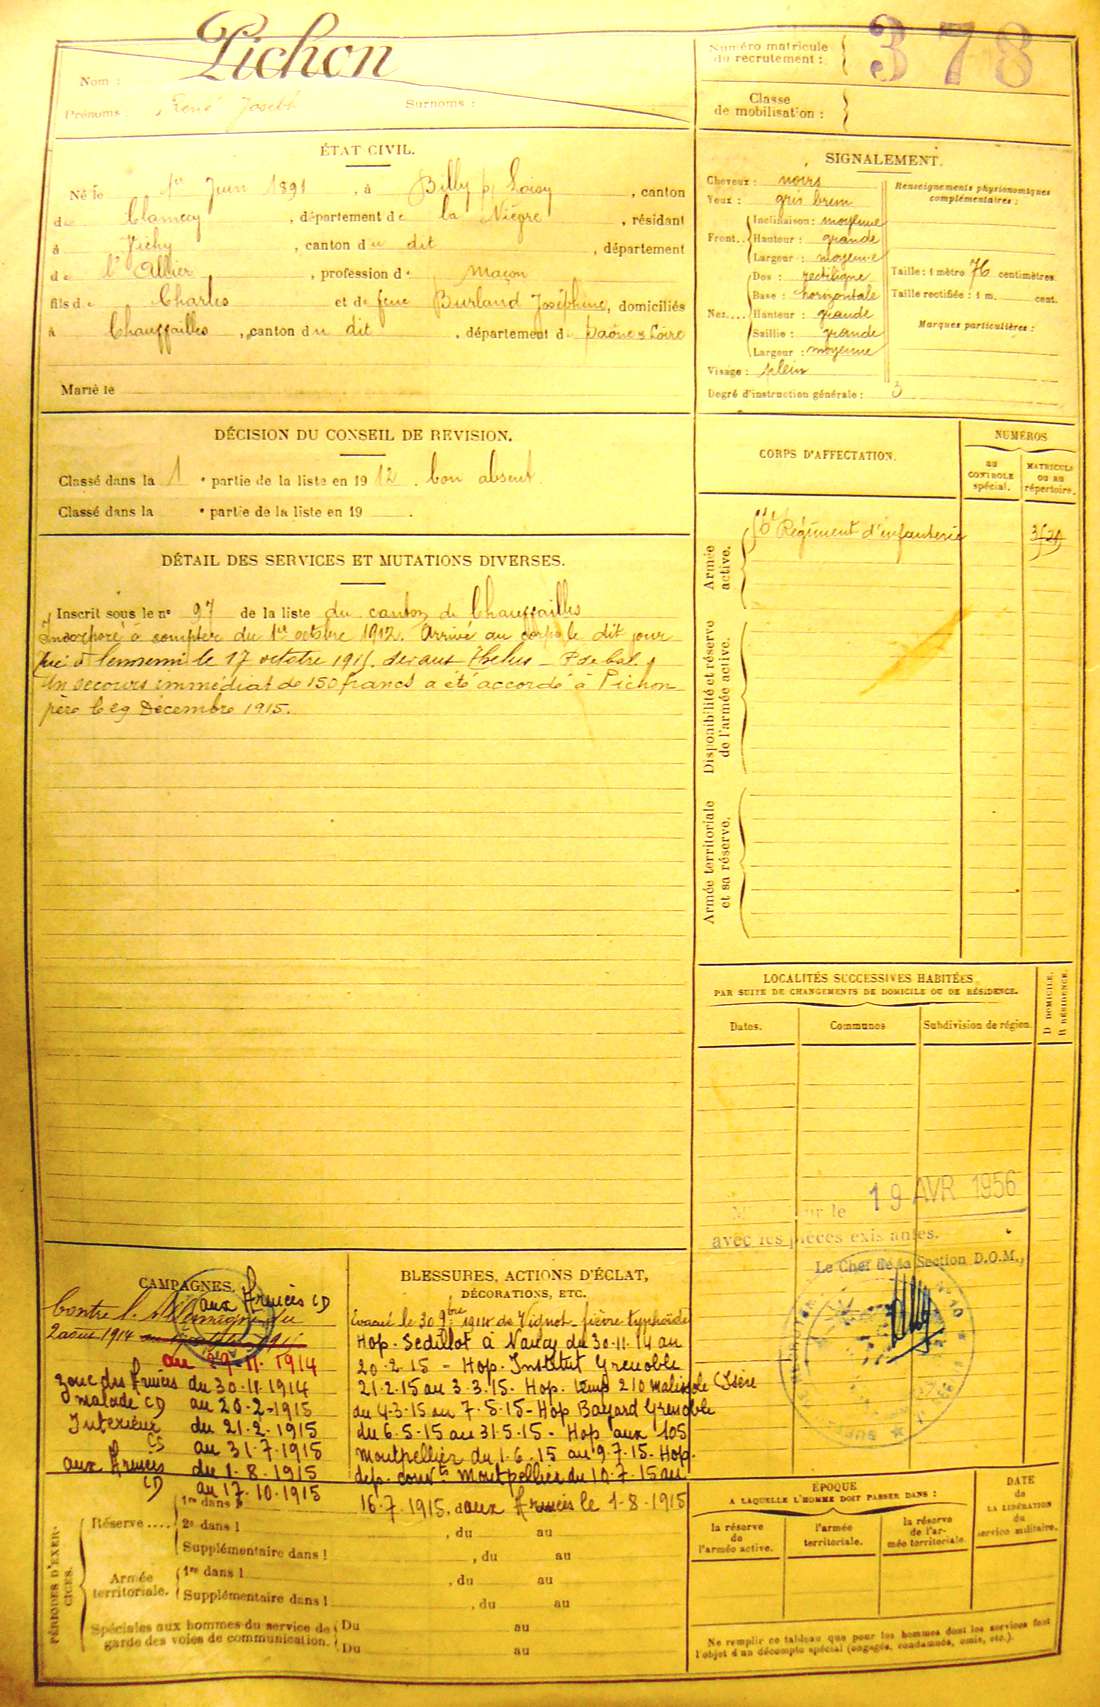 Nom : Pichon
Prénoms : René Joseph Surnoms :
Numéro matricule
du recrutement : 378
Classe
de mobilisation :
ÉTAT CIVIL.
Né le 1er Juin 1891, à Billy s/ Loisy, canton
de Clamecy, département de la Nièvre, résidant
à Vichy, canton du dit, département
de l'Allier, profession de Maçon
fils de Charles et de feue Burland Joséphine, domiciliés
à Chauffailles, canton du dit, département de Saône & Loire
Marié le
SIGNALEMENT.
Cheveux : noirs
Yeux : gris brun
Front.. Inclinaison : moyenne
Hauteur : grande
Largeur : moyenne
Nez.... Dos : rectiligne
Base : horizontale
Hauteur : grande
Saillie : grande
Largeur : moyenne
Visage : plein
Renseignements physionomiques
complémentaires :
Taille : 1 mètre 76 centimètres.
Taille rectifiée : 1 m. cent.
Marques particulières :
Degré d'instruction générale : 3
DÉCISION DU CONSEIL DE REVISION.
Classé dans la 1 e partie de la liste en 1912. bon absent
Classé dans la e partie de la liste en 19 .
DÉTAIL DES SERVICES ET MUTATIONS DIVERSES.
Inscrit sous le no 97 de la liste du canton de Chauffailles
Incorporé à compter du 1er octobre 1912. Arrivé au corps le dit jour
l'ennemi le 17 octobre 1915. devant
Un secours immédiat de 150 francs a été accordé à Pichon
père le 29 Décembre 1915.
CORPS D'AFFECTATION.
NUMÉROS
au
CONTROLE
spécial.
MATRICULE
OU AU
répertoire.
Armée
active.
Régiment d'infanterie
Disponibilité et réserve
de l'armée active.
Armée territoriale
et sa réserve.
LOCALITÉS SUCCESSIVES HABITÉES
PAR SUITE DE CHANGEMENTS DE DOMICILE OU DE RÉSIDENCE.
Dates.
Communes
Subdivision de région.
D DOMICILE.
R RÉSIDENCE.
19 AVR 1956
avec les pièces existantes.
Le Chef de la Section D.O.M.,
CAMPAGNES.
Contre l'Allemagne du
aux Armées CD
2 août 1914
au 29-11-1914
zone des Armées du 30-11-1914
malade CD au 20-2-1915
Intérieur du 21-2-1915
CS au 31-7-1915
aux Armées du 1-8-1915
CD au 17-10-1915
BLESSURES, ACTIONS D'ÉCLAT,
DÉCORATIONS, ETC.
Evacué le 30 9bre 1914 de Vignot fièvre typhoïde
Hop. Sedillot à Nancy du 30-11-14 au
20-2-15 - Hop. Institut Grenoble
21-2-15 au 3-3-15 - Hop. temp 210 Isère
du 4-3-15 au 7-5-15 - Hop Bayard Grenoble
du 6-5-15 au 31-5-15 - Hop aux 105
Montpellier du 1-6-15 au 9-7-15 - Hop.
dép. convts Montpellier du 10-7-15 au
16-7-1915, aux Armées le 1-8-1915
PÉRIODES D'EXERCICES.
Réserve.... 1re dans l
2e dans l , du au
Supplémentaire dans l , du au
Armée
territoriale. 1re dans l , du au
Supplémentaire dans l , du au
Spéciales aux hommes du service de
garde des voies de communication. Du au
Du au
ÉPOQUE
A LAQUELLE L'HOMME DOIT PASSER DANS :
la réserve
de
l'armée active.
l'armée
territoriale.
la réserve
de l'ar-
mée territoriale.
DATE
de
LA LIBÉRATION
du
service militaire.
Ne remplir ce tableau que pour les hommes dont les services font
l'objet d'un décompte spécial (engagés, condamnés, omis, etc.).